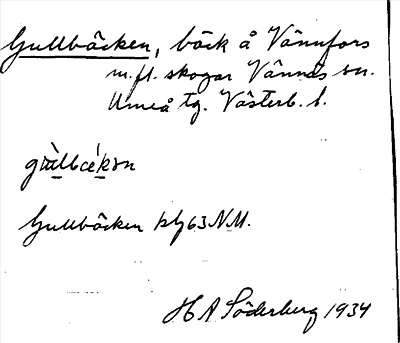 Gullbäcken, bäck å Vännfors
m.fl. skogar Vännäs sn.
Umeå tg. Västerb. l.
gùlbækən
Gullbäcken blg 63 N.M.
H A Söderberg 1934